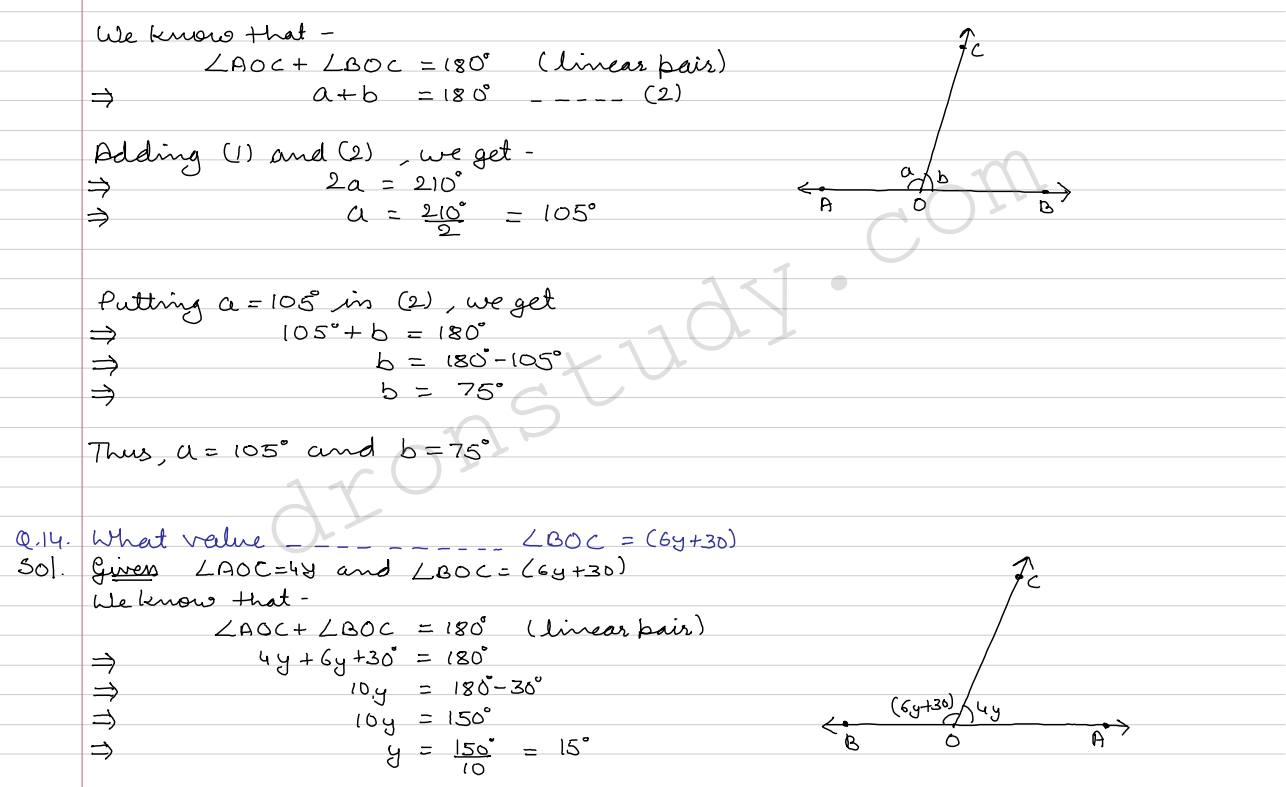 We know that -
∠AOC + ∠BOC = 180° (linear pair)
⇒ a+b = 180° - - - - - (2)
Adding (1) and (2), we get -
⇒ 2a = 210°
⇒ a = 210°/2 = 105°
Putting a = 105° in (2), we get
⇒ 105° + b = 180°
⇒ b = 180° - 105°
⇒ b = 75°
Thus, a = 105° and b = 75°
C
a b
A O B
Q.14. What value - - - - - - - - - - ∠BOC = (6y+30)
Sol. Given ∠AOC = 4y and ∠BOC = (6y+30)
We know that -
∠AOC + ∠BOC = 180° (linear pair)
⇒ 4y + 6y + 30° = 180°
⇒ 10y = 180° - 30°
⇒ 10y = 150°
⇒ y = 150°/10 = 15°
C
(6y+30) 4y
B O A
dronstudy.com